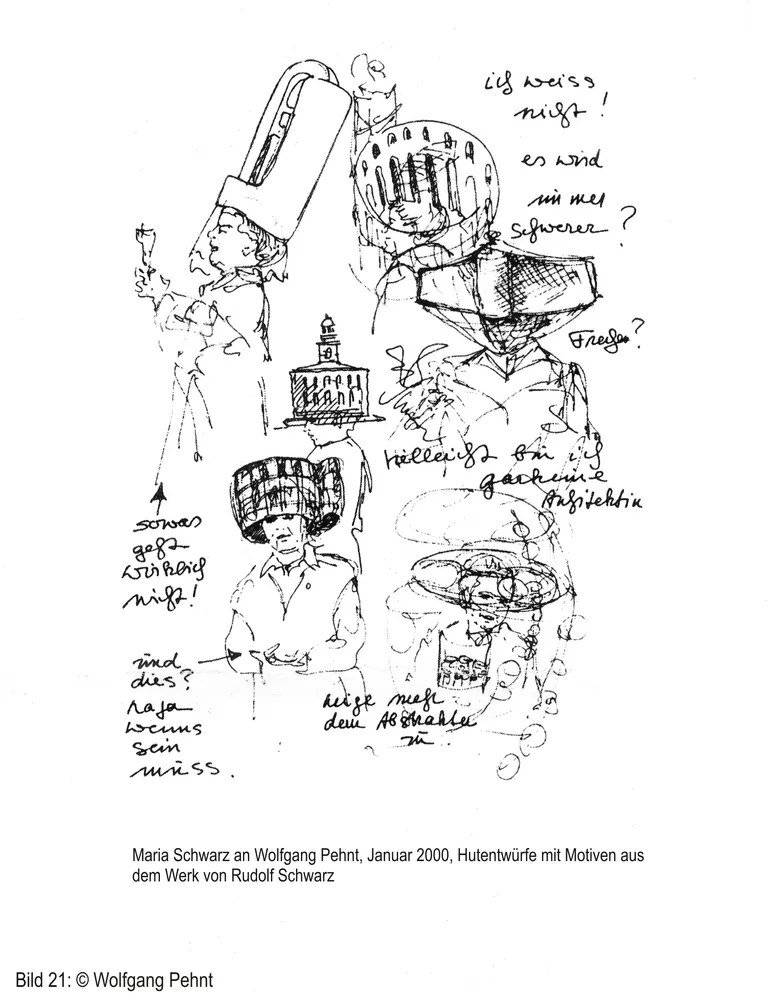 ich weiss
nicht!
es wird
immer
schwerer?
Freyer?
vielleicht bin ich
garkeine
Architektin
sowas
geht
wirklich
nicht!
und
dies?
naja
wenns
sein
muss.
neige mehr
dem Abstrakten
zu.
Maria Schwarz an Wolfgang Pehnt, Januar 2000, Hutentwürfe mit Motiven aus
dem Werk von Rudolf Schwarz
Bild 21: © Wolfgang Pehnt